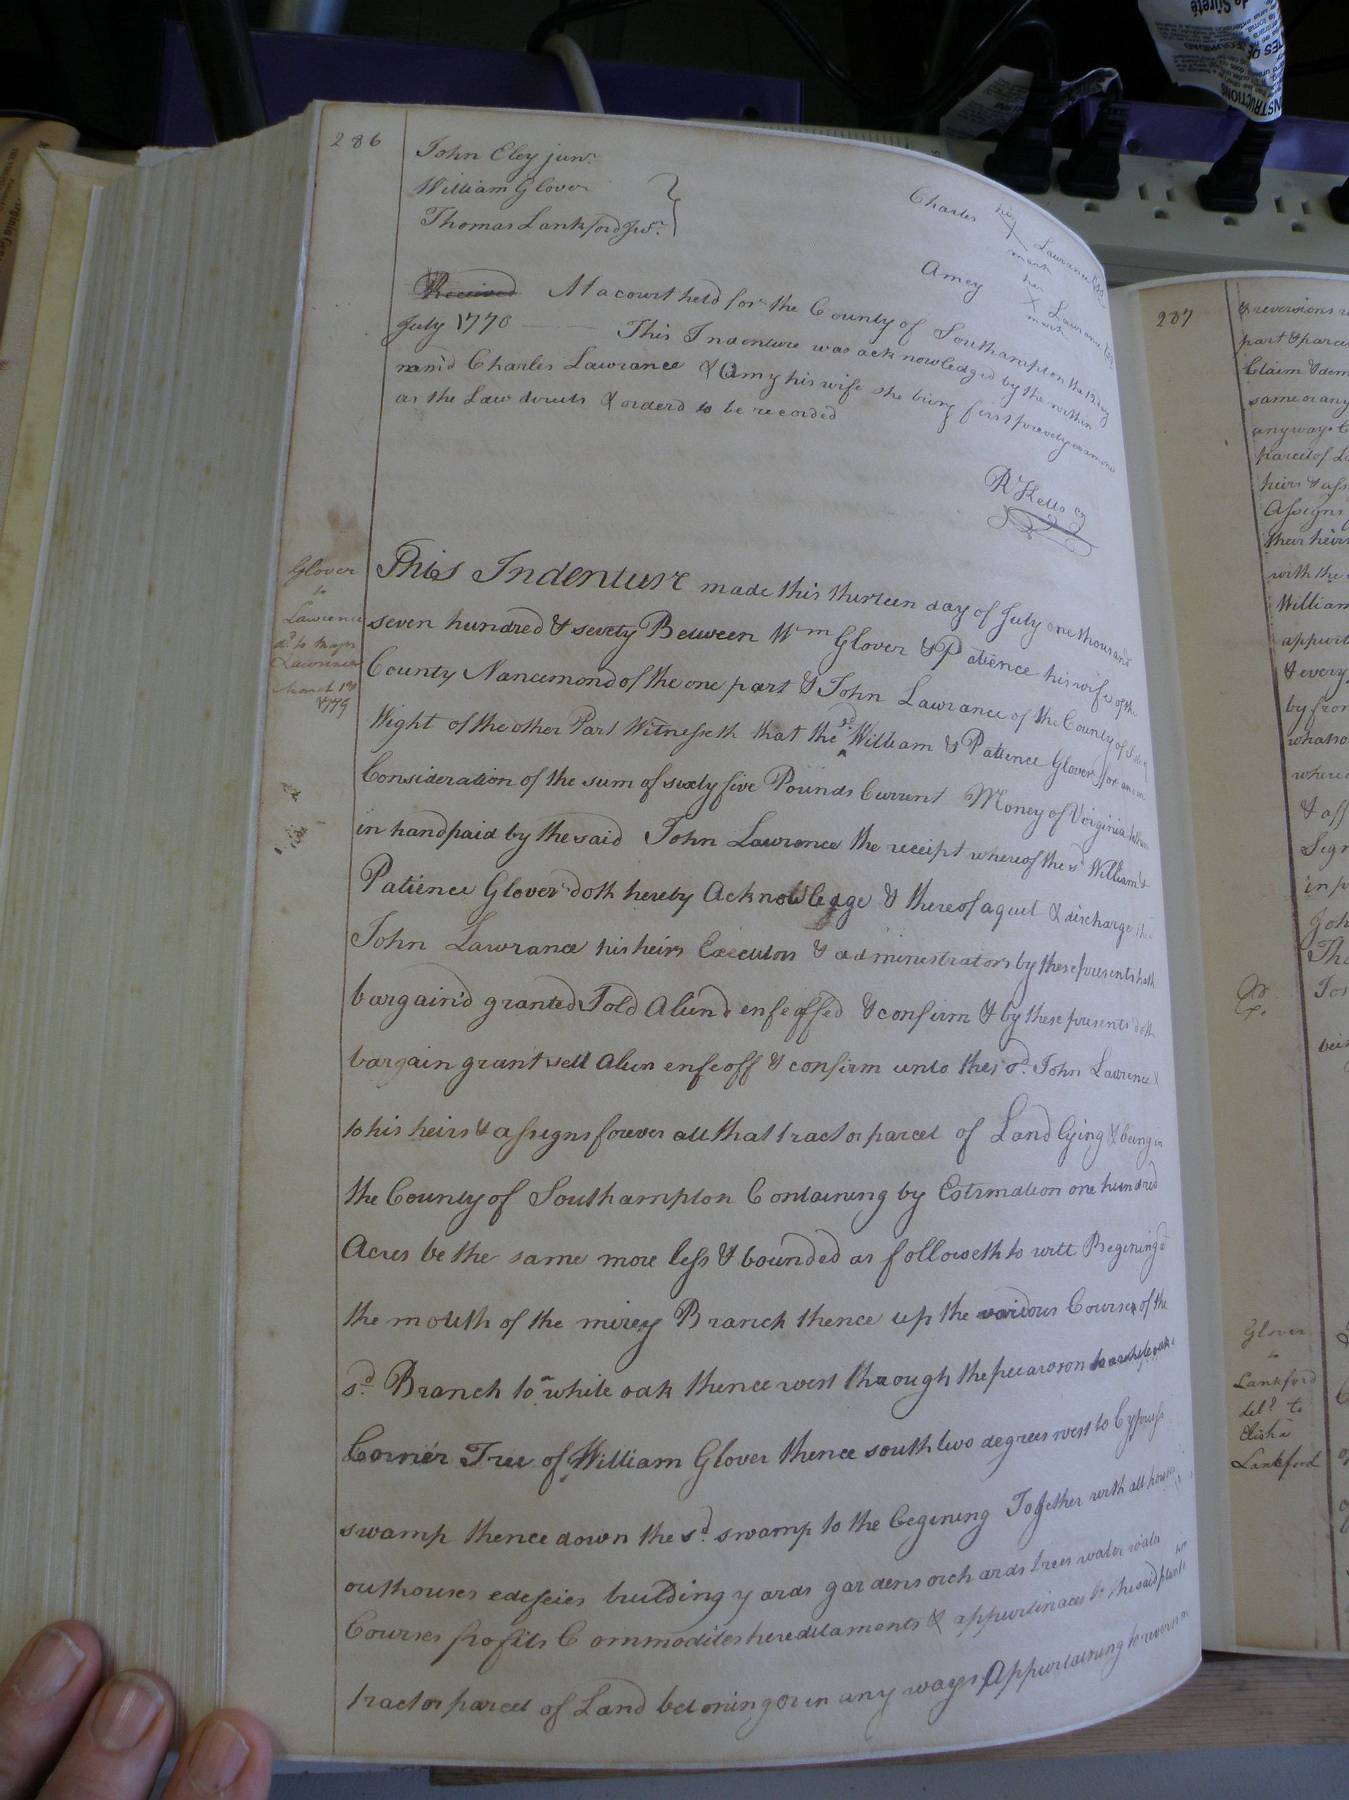 286
John Eley junr.
William Glover
Thomas Lankford Junr.
Charles his X mark Lawrance
Amey her X mark Lawrance
Received At a court held for the County of Southampton the
July 1770 This Indenture was acknowledged by the within
nam'd Charles Lawrance & Amy his wife she being first privately examined
as the Law directs & orderd to be recorded
R Kello
Glover
to
Lawrence
dd. to
Lawrence
March 1st
1779
This Indenture made this thirteen day of July one thousand
seven hundred & sevety Between Wm Glover & Patience his wife of the
County Nancemond of the one part & John Lawrance of the County of
Wight of the other Part Witnesseth that the sd. William & Patience Glover for
Consideration of the sum of sixty five Pounds Current Money of Virginia
in hand paid by the said John Lawrence the receipt whereof the sd William &
Patience Glover doth hereby Acknowledge & thereof aquit & discharge the
John Lawrance his heirs Executors & administrators by these presents hath
bargain'd granted Sold Alien'd enfeoffed & confirm & by these presents doth
bargain grant sell Alien enfeoff & confirm unto the sd. John Lawrence &
to his heirs & assigns forever all that tract or parcel of Land lying & being in
the County of Southampton Containing by Estimation one hundred
Acres be the same more less & bounded as followeth to witt Begining
the mouth of the mirey Branch thence up the various Courses of the
sd. Branch to a white oak thence west through the to a white oak
Corner Tree of William Glover thence south two degrees west to Cypress
swamp thence down the sd. swamp to the begining Together with all houses
outhouses edefeies building yards gardens orchards trees water
Courses profits Commodites hereditaments & appurtinaces to the said
tract or parcel of Land beloning or in any ways Appurtaining
287
& reversions
part & parcel
Claim & dem
same or any
any ways
parcel of La
heirs & ass
Assigns
their heirs
with the
William
appurt
& every
by from
whatso
where
& ass
Sign
in p
John
Tho
Jos
bei
Glover
to
Lankford
deld. to
Elisha
Lankford